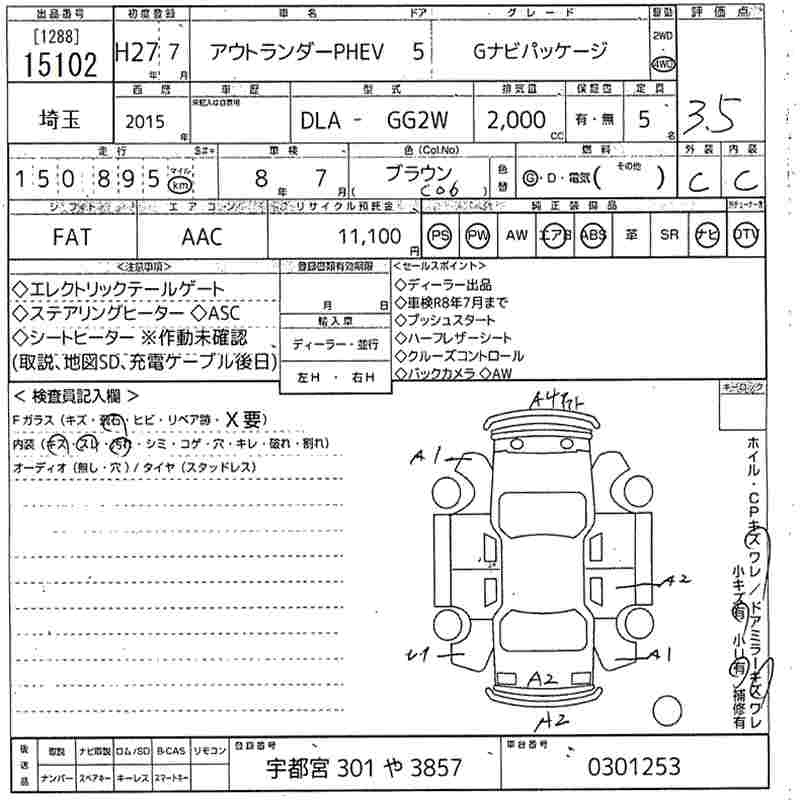 出品番号 初度登録 車名 ドア グレード 駆動 評価点
[1288]
15102 H27 年 7 月 アウトランダーPHEV 5 Gナビパッケージ 2WD 4WD
西暦 車歴 型式 排気量 保証書 定員
埼玉 2015 年 記入無は自家用 DLA - GG2W 2,000 cc 有・無 5 名 3.5
走行 車検 色(Col.No) 燃料 外装 内装
150895 マイル km 8 年 7 月 ブラウン ( C06 ) 色替 G・D・電気( その他 ) C C
シフト エアコン リサイクル預託金 純正装備品
FAT AAC 11,100 円 PS PW AW エアB ABS 革 SR ナビ DTV
<注意事項> 登録書類有効期限 <セールスポイント>
◇エレクトリックテールゲート ◇ディーラー出品
◇ステアリングヒーター ◇ASC 月 日 ◇車検R8年7月まで
◇シートヒーター ※作動未確認 輸入車 ◇プッシュスタート
(取説、地図SD、充電ケーブル後日) ディーラー・並行 ◇ハーフレザーシート
◇クルーズコントロール
左H ・ 右H ◇バックカメラ ◇AW
< 検査員記入欄 > キーロック
Fガラス (キズ・飛石・ヒビ・リペア跡・X要)
内装 (キズ・スレ・汚れ・シミ・コゲ・穴・キレ・破れ・割れ)
オーディオ (無し・穴) / タイヤ (スタッドレス)
A4
A1
A2
A1
A2
A2
ホイル・CPキズワレ/ドアミラーキズワレ
小キズ有 小U有 補修有
後送品 取説 ナビ取説 ロム/SD B-CAS リモコン 登録番号 車台番号
ナンバー スペアキー キーレス スマートキー 宇都宮 301 や 3857 0301253